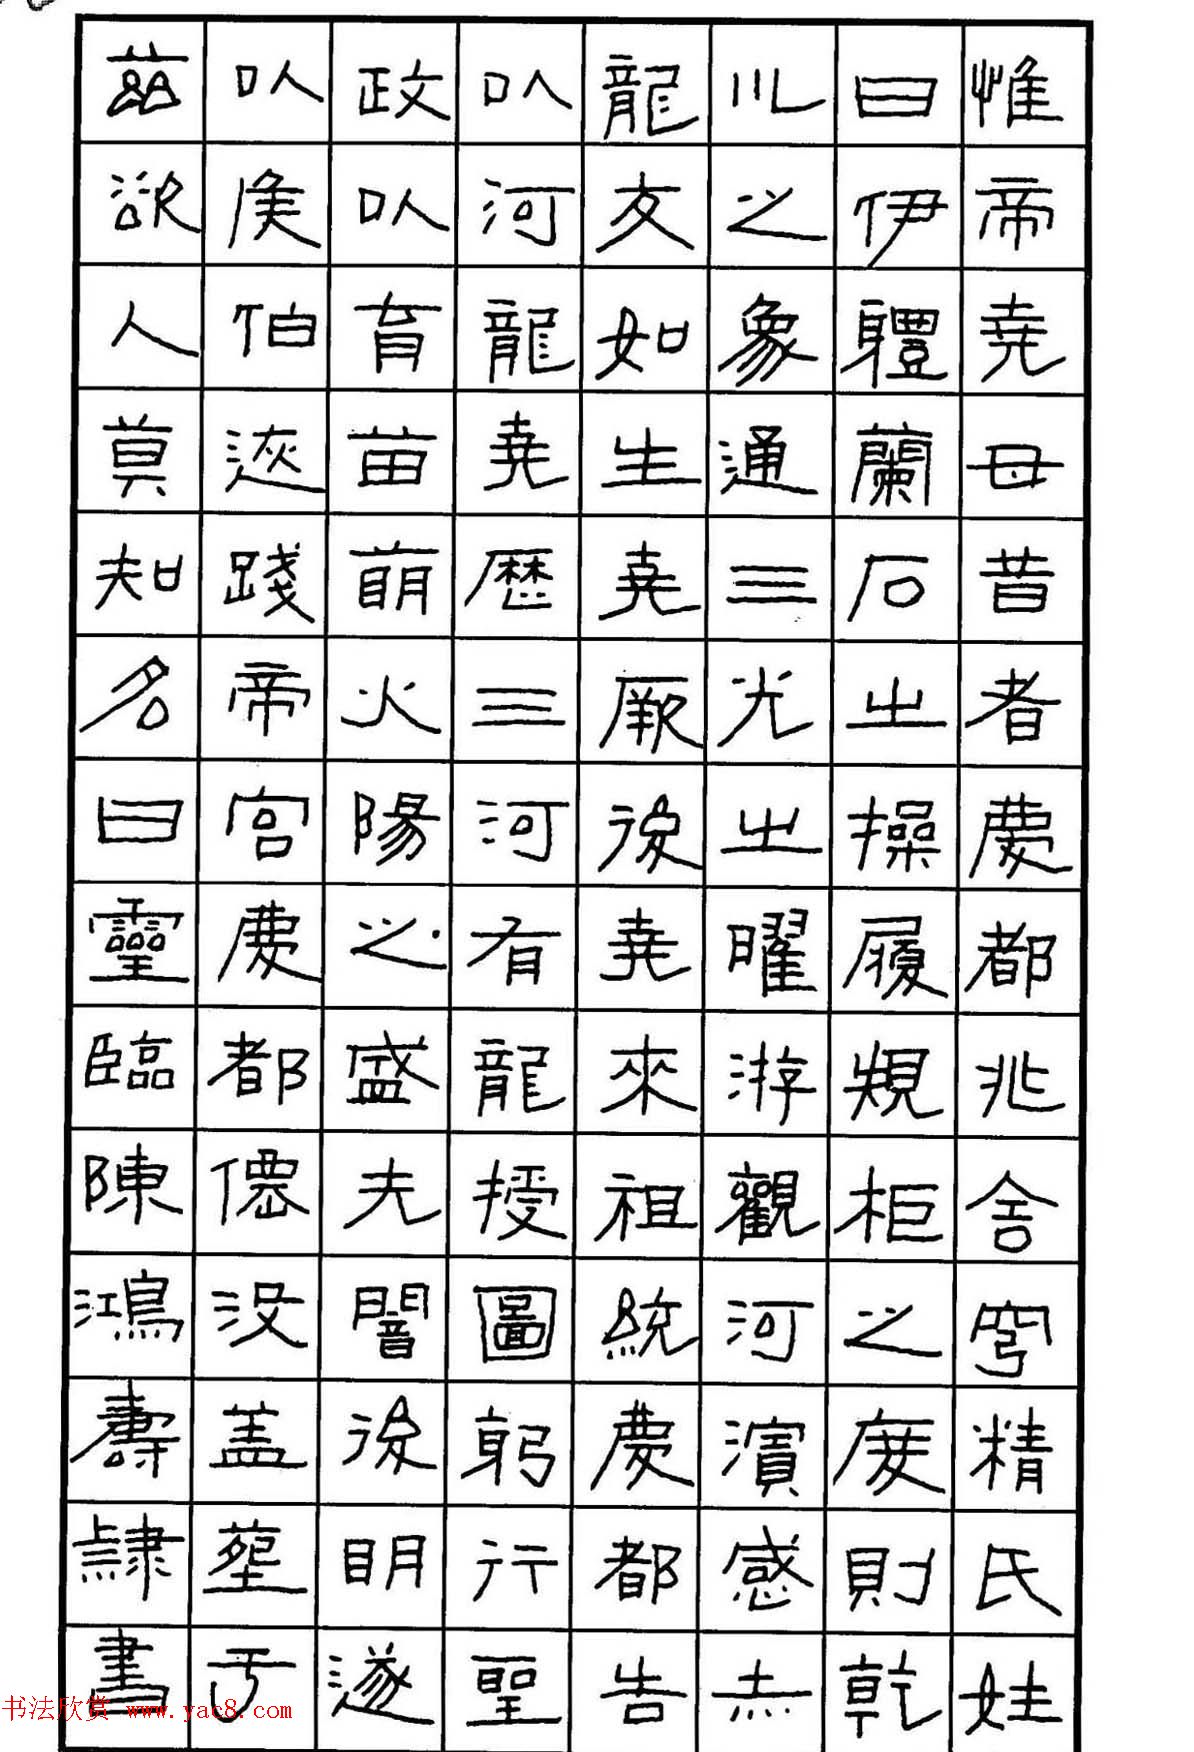 惟帝堯母昔者慶都兆舍穹精氏姓
曰伊體蘭石之操履規柜之度則乾
川之象通三光之曜游觀河濱感赤
龍交如生堯厥後堯來祖統慶都告
以河龍堯歷三河有龍授圖躬行聖
政以育苗萌火陽之盛先闇後明遂
以侯伯遊踐帝宮慶都僊没盖葬于
兹欲人莫知名曰靈臨陳鴻壽隸書
书法欣赏 www.yac8.com